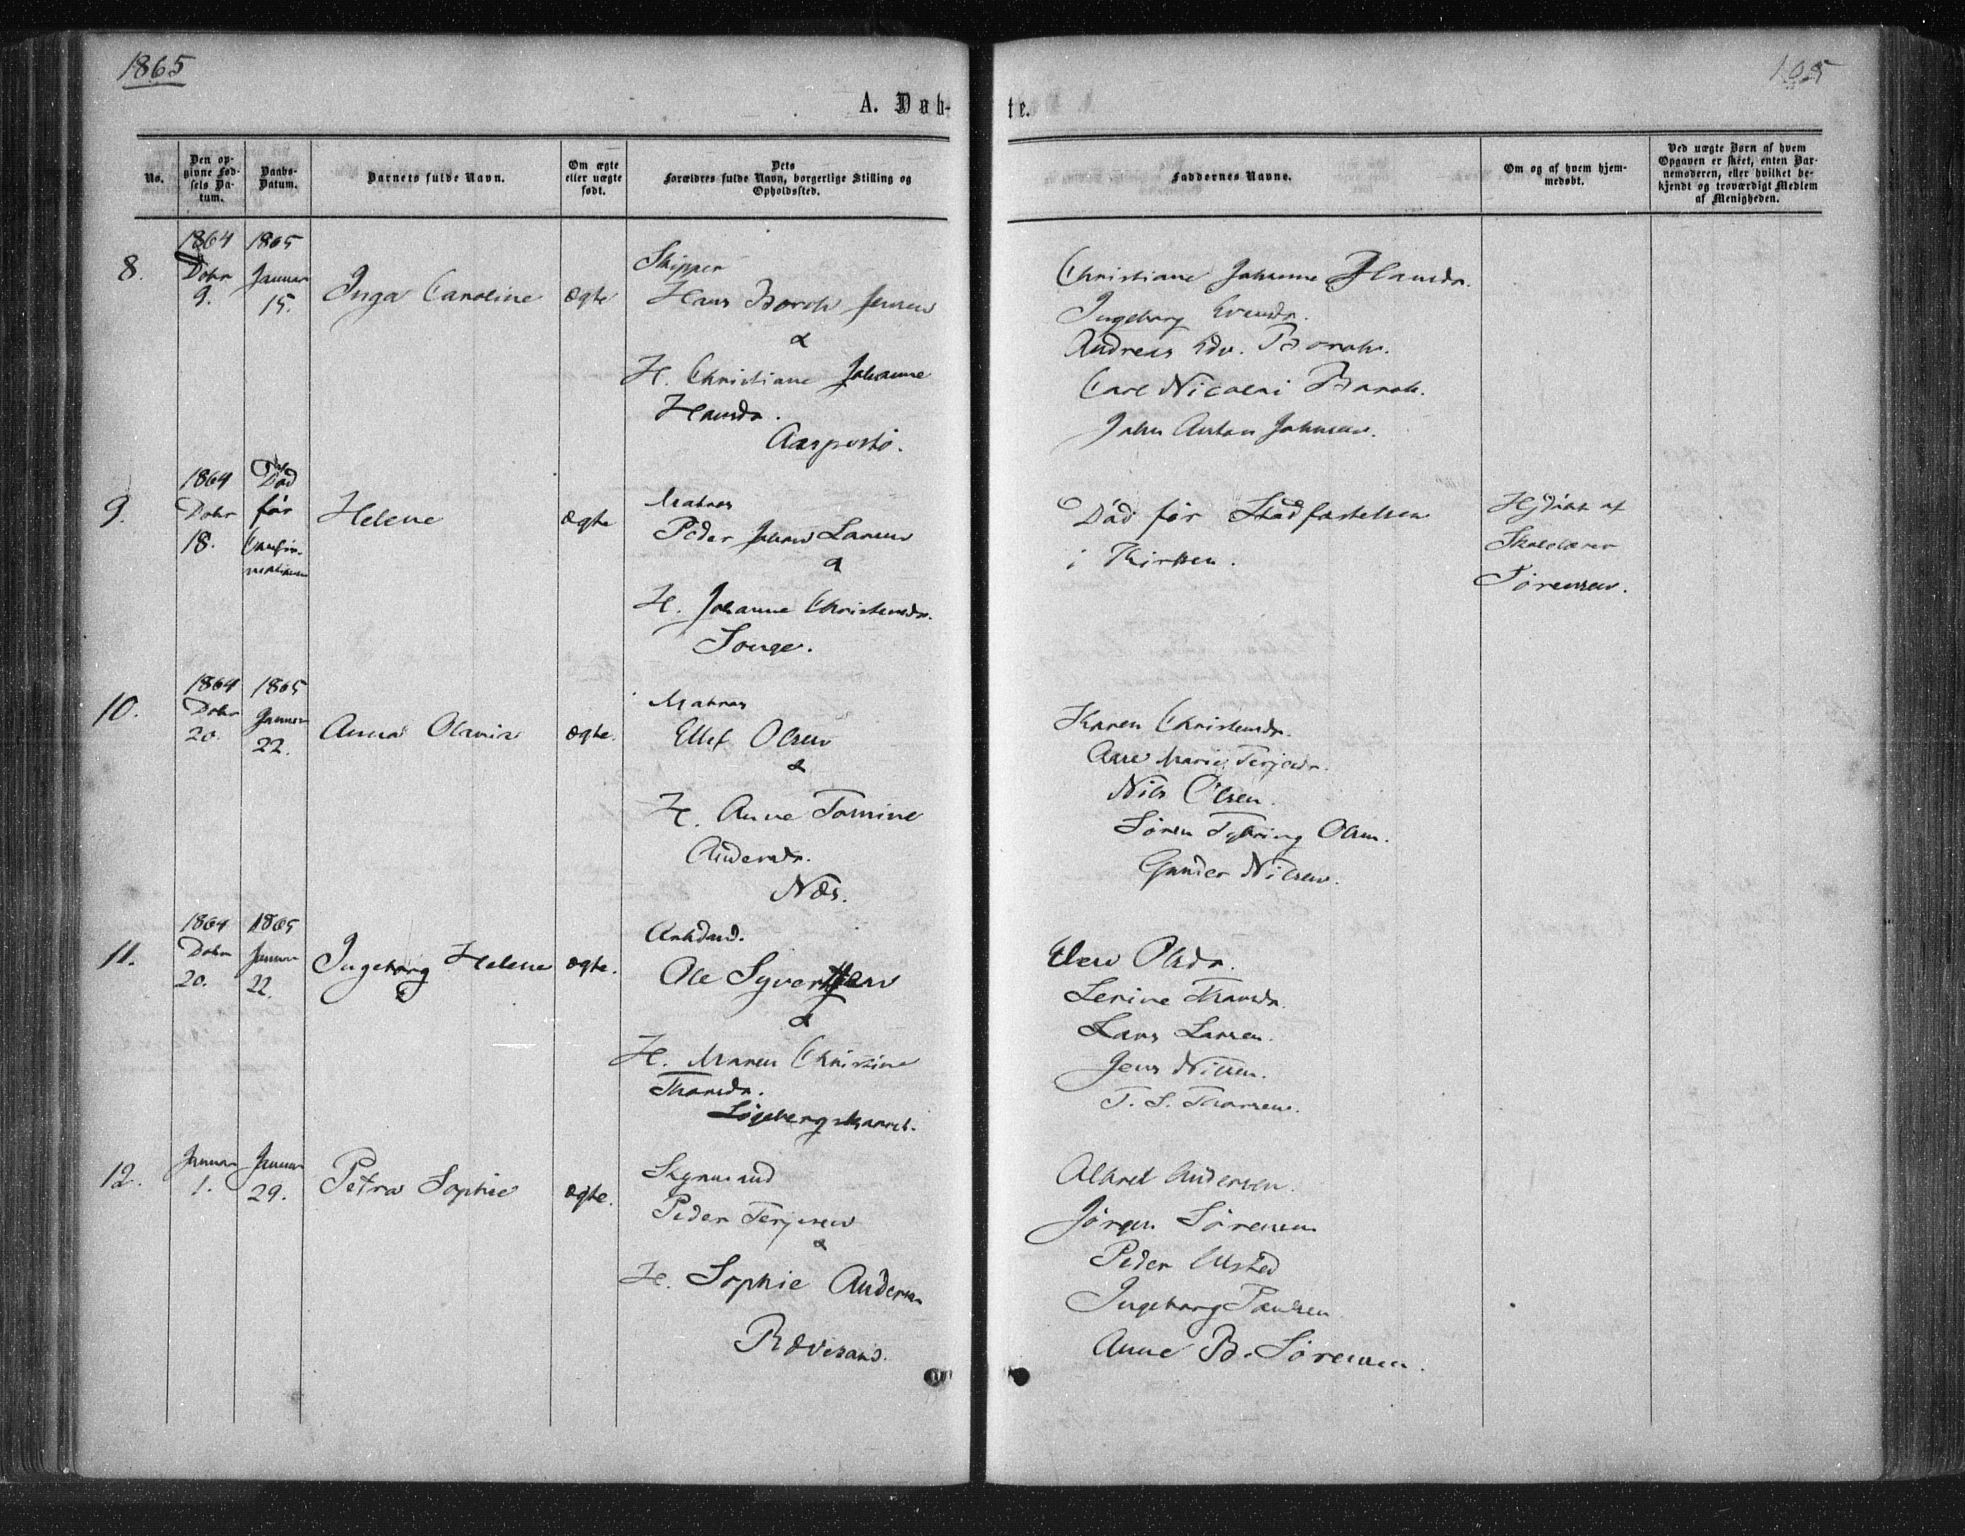 1865
105
A. Døb-
te.
No.
Den op-
givne Fød-
sels Da-
tum.
Daabs-
Datum.
Barnets fulde Navn.
Om ægte
eller uægte
født.
Dets
Forældres fulde Navn, borgerlige Stilling og
Opholdssted.
Faddernes Navne.
Om og af hvem hjem-
medøbt.
Ved uægte Børn af hvem
Opgaven er skeet, enten Bar-
nemoderen, eller hvilket be-
kjendt og troværdigt Medlem
af Menigheden.
8.
1864
Dcbr
9.
1865
Januar
15.
Inga Caroline
ægte
Skipper
Hans Borch Jensen
&
H. Christiane Johanne
Hansdr.
Christiane Johanne Hansdr.
Ingeborg
Andreas Edv. Borch.
Carl Nicolai Borch.
John Anton Johnsen.
9.
1864
Dcbr
18.
Død
før
Confir-
mationen
Helene
ægte
Matros
Peder Johan Larsen
&
H. Johanne Christensdr.
Songe.
Død før Stadfæstelsen
i Kirken.
Hjdøbt af
Skolelærer
Sørensen.
10.
1864
Dcbr
20.
1865
Januar
22.
Anna Olavia
ægte.
Matros
Ellef Olsen
&
H. Anne Tomine
Andersdr.
Næs.
Karen Christensdr.
Ane Marie Terjesdr.
Nils Olsen.
Søren Tybring Olsen.
Gunder Nilsen.
11.
1864
Dcbr
20.
1865
Januar
22.
Ingeborg Helene
ægte.
Arbdmd.
Ole Syvertsen
&
H. Maren Christine
Thorsdr.
Elen Olsdr.
Serine Thorsdr.
Lars Larsen.
Jens Nilsen.
T. S. Thorsen.
12.
Januar
1.
Januar
29.
Petra Sophie
ægte.
Styrmand
Peder Terjesen
&
H. Sophie Andersen
Rævesand.
Alfred Andersen.
Jørgen Sørensen
Peder Ulsted
Ingeborg Paulsen
Anne B. Sørensen.